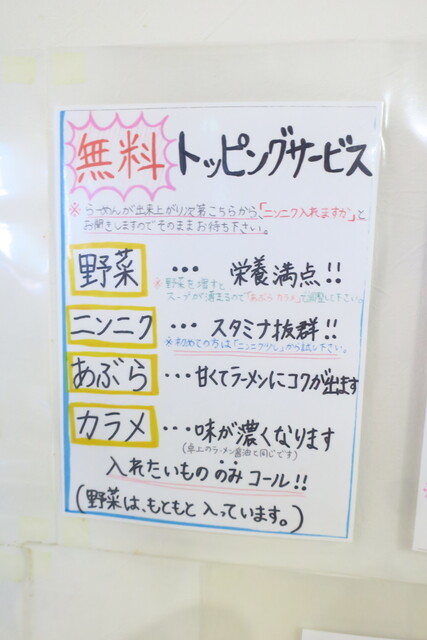 無料 トッピングサービス
※らーめんが出来上がり次第こちらから、「ニンニク入れますか」と
お聞きしますのでそのままお待ち下さい。
野菜 ・・・ 栄養満点!!
※野菜を増すと
スープが薄まるので「あぶら カラメ」で調整して下さい。
ニンニク ・・・ スタミナ抜群!!
※初めての方は「ニンニク少し」から試し下さい。
あぶら ・・・甘くてラーメンにコクが出ます
カラメ ・・・味が濃くなります
(卓上のラーメン醤油と同じです)
入れたいもの のみ コール!!
(野菜は、もともと入っています。)